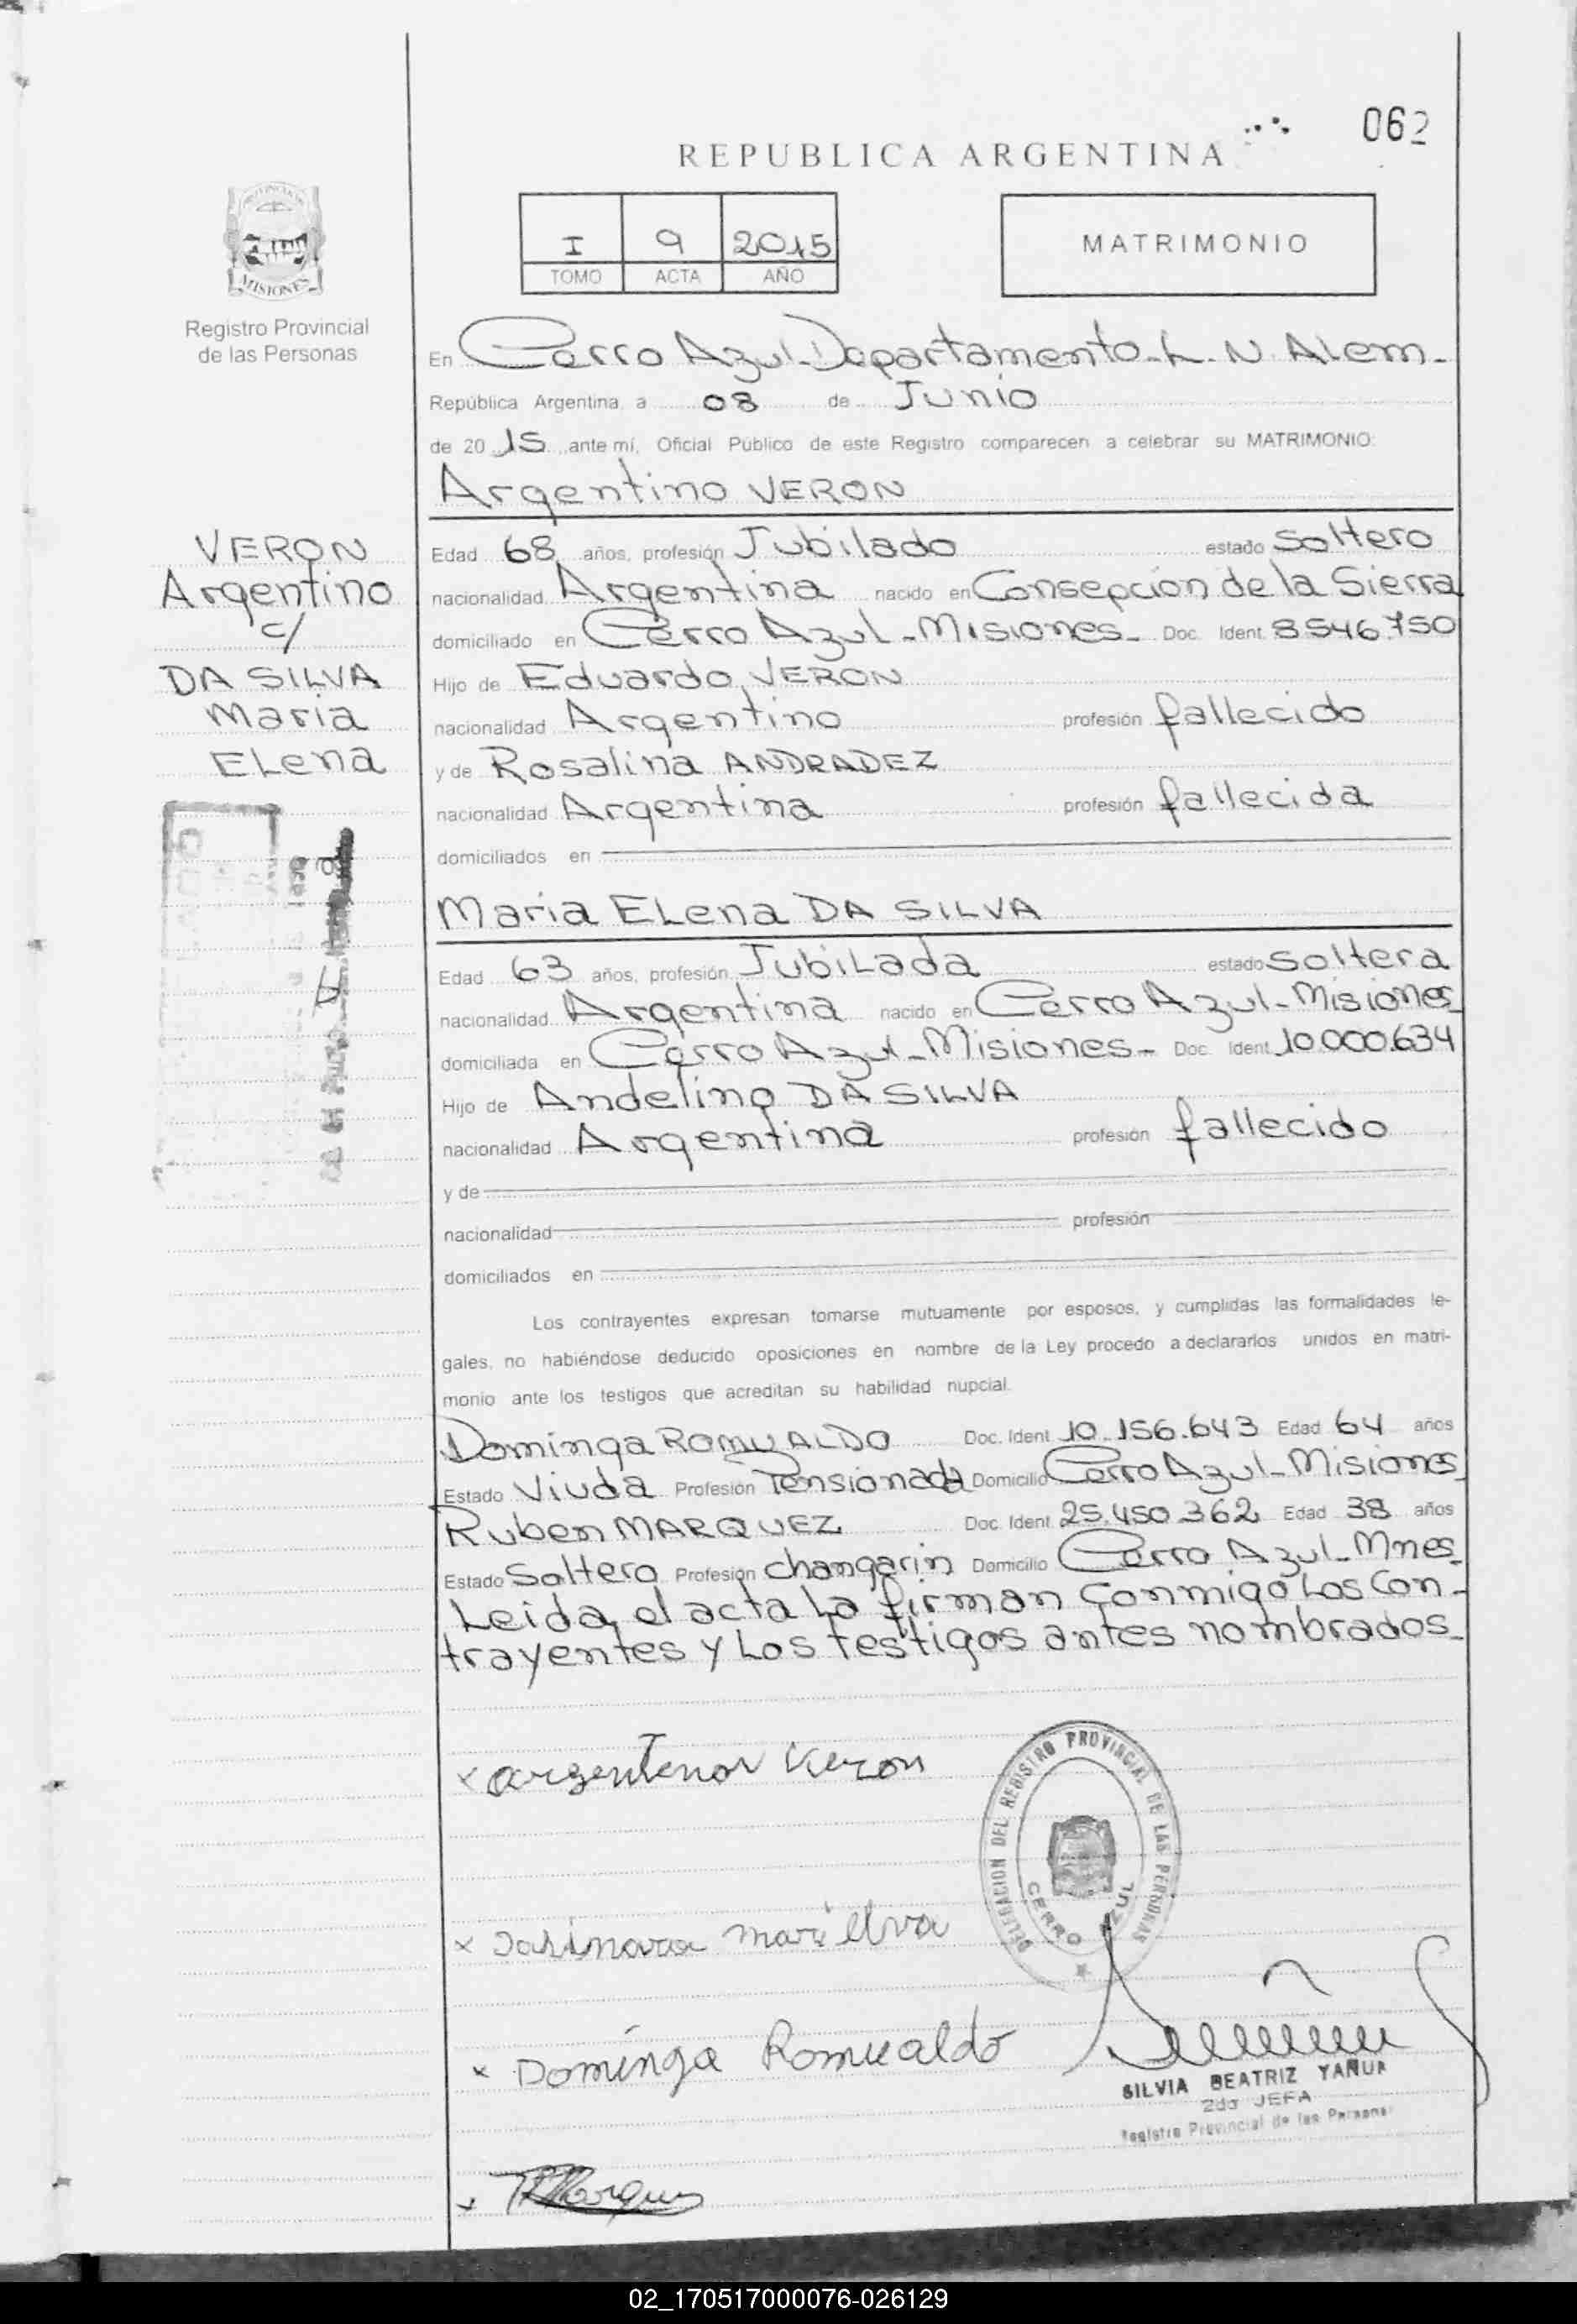 062
REPUBLICA ARGENTINA
I 9 2015
TOMO ACTA AÑO
MATRIMONIO
MISIONES
Registro Provincial
de las Personas
En Cerro Azul-Departamento-L.N.Alem-
República Argentina, a 08 de Junio
de 20 15 ante mí, Oficial Público de este Registro comparecen a celebrar su MATRIMONIO:
Argentino VERON
VERON
Argentino
c/
DA SILVA
Maria
ELena
Edad 68 años, profesión Jubilado estado Soltero
nacionalidad Argentina nacido en Consepcion de la Sierra
domiciliado en Cerro Azul-Misiones- Doc. Ident. 8.546.750
Hijo de Eduardo VERON
nacionalidad Argentino profesión fallecido
y de Rosalina ANDRADEZ
nacionalidad Argentina profesión fallecida
domiciliados en
Maria ELena DA SILVA
Edad 63 años, profesión JubiLada estado Soltera
nacionalidad Argentina nacido en Cerro Azul-Misiones
domiciliada en Cerro Azul-Misiones- Doc. Ident. 10.000.634
Hijo de Andelino DA SILVA
nacionalidad Argentina profesión fallecido
y de
nacionalidad profesión
domiciliados en
Los contrayentes expresan tomarse mutuamente por esposos, y cumplidas las formalidades le-
gales, no habiéndose deducido oposiciones en nombre de la Ley procedo a declararlos unidos en matri-
monio ante los testigos que acreditan su habilidad nupcial.
Dominga ROMUALDO Doc. Ident. 10.156.643 Edad 64 años
Estado Viuda Profesión Pensionada Domicilio Cerro Azul-Misiones
Ruben MARQUEZ Doc. Ident. 25.450.362 Edad 38 años
Estado Soltero Profesión changarin Domicilio Cerro Azul-Mnes
Leida el acta La firman conmigo Los Con-
trayentes y Los testigos antes nombrados-
x argentenor Veron
DELEGACION DEL REGISTRO PROVINCIAL DE LAS PERSONAS
CERRO AZUL
x Dominga Romualdo
SILVIA BEATRIZ YAÑUK
2da JEFA
Registro Provincial de las Personas
x Marquez
02_170517000076-026129